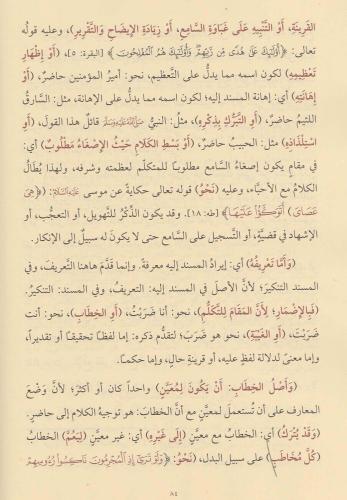 القَرينَةِ، (أَوِ التَّنْبِيهِ عَلَى غَبَاوَةِ السَّامِعِ، أَوْ زِيَادَةِ الإِيضَاحِ وَالتَّقْرِيرِ)، وعليه قولُه
تعالى: ﴿أُوْلَٰٓئِكَ عَلَىٰ هُدًى مِّن رَّبِّهِمْ وَأُوْلَٰٓئِكَ هُمُ ٱلْمُفْلِحُونَ﴾ [البقرة: ٥]، (أَوْ إِظْهَارِ
تَعْظِيمِهِ) لكون اسمه مما يدلُّ على التَّعظيم، نحو: أميرُ المؤمنين حاضرٌ، (أَوْ
إِهَانَتِهِ) أي: إهانة المسند إليه؛ لكون اسمه مما يدلُّ على الإهانة، مثل: السارقُ
اللئيمُ حاضرٌ، (أَوِ التَّبَرُّكِ بِذِكْرِهِ)، مثل: النبيُّ صلى الله عليه وسلم قائلُ هذا القول، (أَوِ
اسْتِلْذَاذِهِ) مثل: الحبيبُ حاضرٌ، (أَوْ بَسْطِ الكَلَامِ حَيْثُ الإِصْغَاءُ مَطْلُوبٌ) أي:
في مقامٍ يكون إصغاءُ السامع مطلوبًا للمتكلِّم لعظمته وشرفه، ولهذا يُطَالُ
الكلامُ مع الأحبَّاء، وعليه (نَحْوُ) قوله تعالى حكايةً عن موسى عليه السلام: (﴿هِىَ
عَصَاىَ﴾ ﴿أَتَوَكَّؤُاْ عَلَيْهَا﴾) [طه: ١٨]. وقد يكون الذِّكْرُ للتَّهويل، أو التعجُّب، أو
الإشهاد في قضيَّةٍ، أو التسجيل على السامع حتى لا يكونَ له سبيلٌ إلى الإنكار.
(وَأَمَّا تَعْرِيفُهُ) أي: إيرادُ المسند إليه معرفةً. وإنما قدَّمَ هاهنا التعريفَ، وفي
المسند التنكيرَ؛ لأنَّ الأصلَ في المسند إليه: التعريفُ، وفي المسند: التنكيرُ.
(فَبِالإِضْمَارِ؛ لِأَنَّ المَقَامَ لِلتَّكَلُّمِ)، نحو: أنا ضَرَبْتُ، (أَوِ الخِطَابِ)، نحو: أنت
ضَرَبْتَ، (أَوِ الغَيْبَةِ)، نحو هو ضَرَبَ؛ لتقدُّم ذكره: إما لفظًا تحقيقًا أو تقديرًا،
وإما معنىً لدلالة لفظٍ عليه، أو قرينةِ حالٍ، وإما حكمًا.
(وَأَصْلُ الخِطَابِ: أَنْ يَكُونَ لِمُعَيَّنٍ) واحدًا كان أو أكثرَ؛ لأنَّ وَضْعَ
المعارف على أن تُستعملَ لمعيَّنٍ مع أنَّ الخطابَ: هو توجيهُ الكلام إلى حاضرٍ.
(وَقَدْ يُتْرَكُ) أي: الخطاب مع معيَّنٍ (إِلَى غَيْرِهِ) أي: غير معيَّنٍ (لِيَعُمَّ) الخطابُ
(كُلَّ مُخَاطَبٍ) على سبيل البدل، (نَحْوُ: ﴿وَلَوْ تَرَىٰٓ إِذِ ٱلْمُجْرِمُونَ نَاكِسُواْ رُءُوسِهِمْ
٨٤